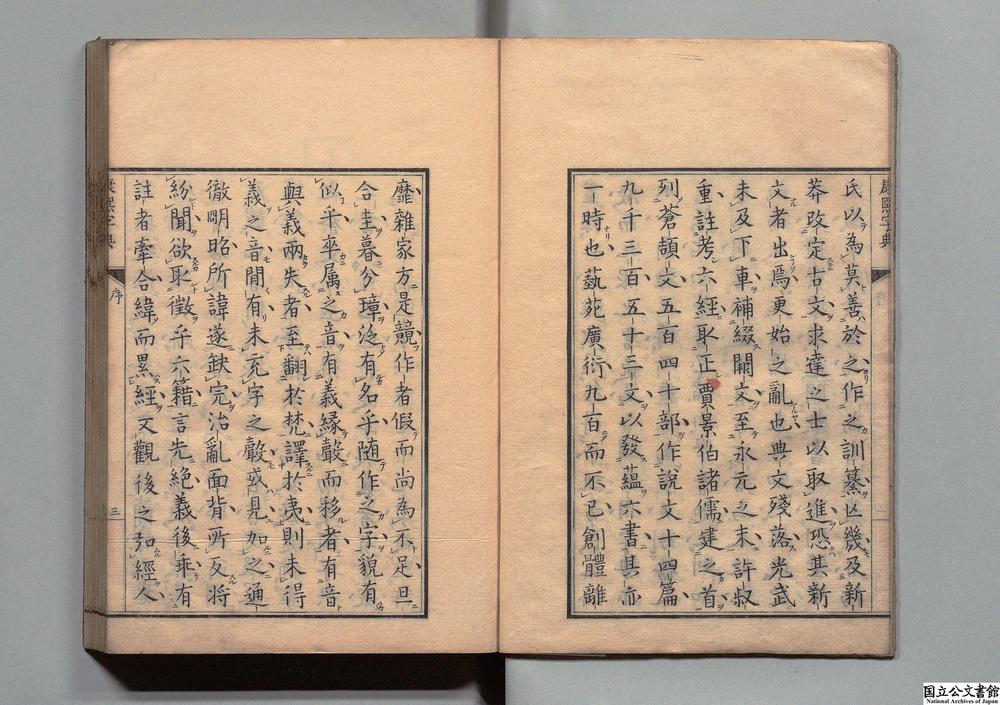 康熙字典
氏以為莫善於之作之訓纂凶幾及新
莽改定古文求達之士以取進恐其新
文者出焉更始之亂也典文殘落光武
未及下車補綴闕文至永元之末許叔
重註考六經取正賈景伯諸儒建之首
列蒼頡文五百四十部作說文十四篇
九千三百五十三文以發蘊六書其亦
一時也蓺苑廣衍九百而不已創體離
靡雜家方是競作者假而尚為不足旦
合圭暮分璋泛有名乎随作之字貌有
似乎率属之音有義縁聲而移者有音
與義兩失者至翻於梵譯於夷則未得
義之音間有未充字之聲或見加之通
徹明昭所諱遂缺完治亂面背所反将
紛聞欲取徵乎六籍言先絶義後乖有
註者牽合緯而累經又觀後之弘經人
康熙字典
序
三
国立公文書館
National Archives of Japan